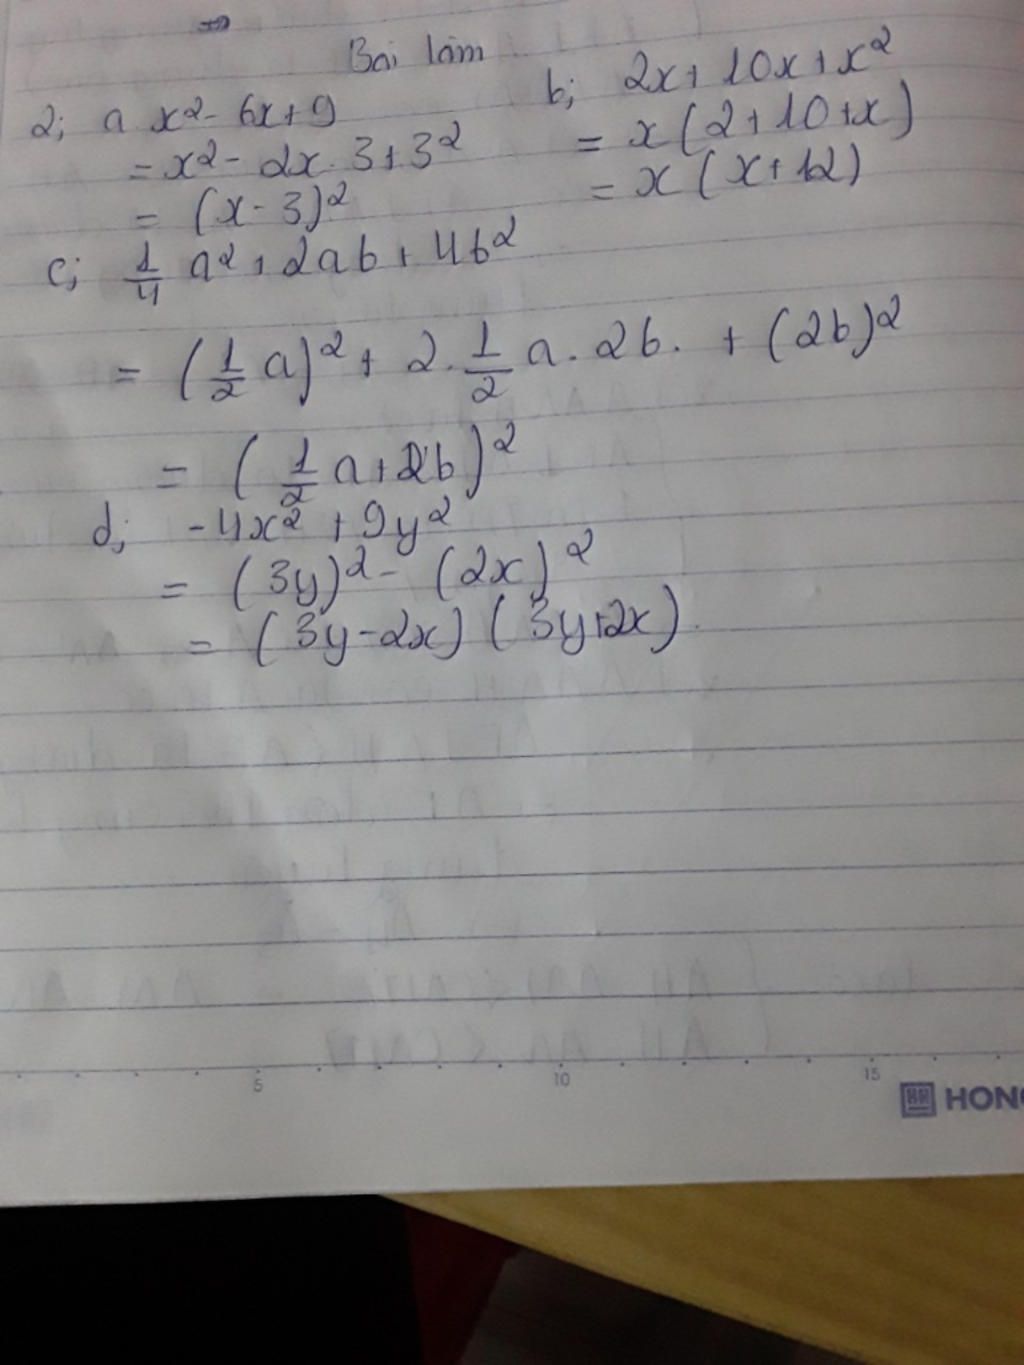 Bai làm
2; a x² - 6x + 9
= x² - 2x . 3 + 3²
= (x - 3)²
b; 2x + 10x + x²
= x (2 + 10 + x)
= x (x + 12)
c; 1/4 a² + 2ab + 4b²
= (1/2 a)² + 2 . 1/2 a . 2b . + (2b)²
= (1/2 a + 2b)²
d; -4x² + 9y²
= (3y)² - (2x)²
= (3y - 2x) (3y + 2x).
5 10 15